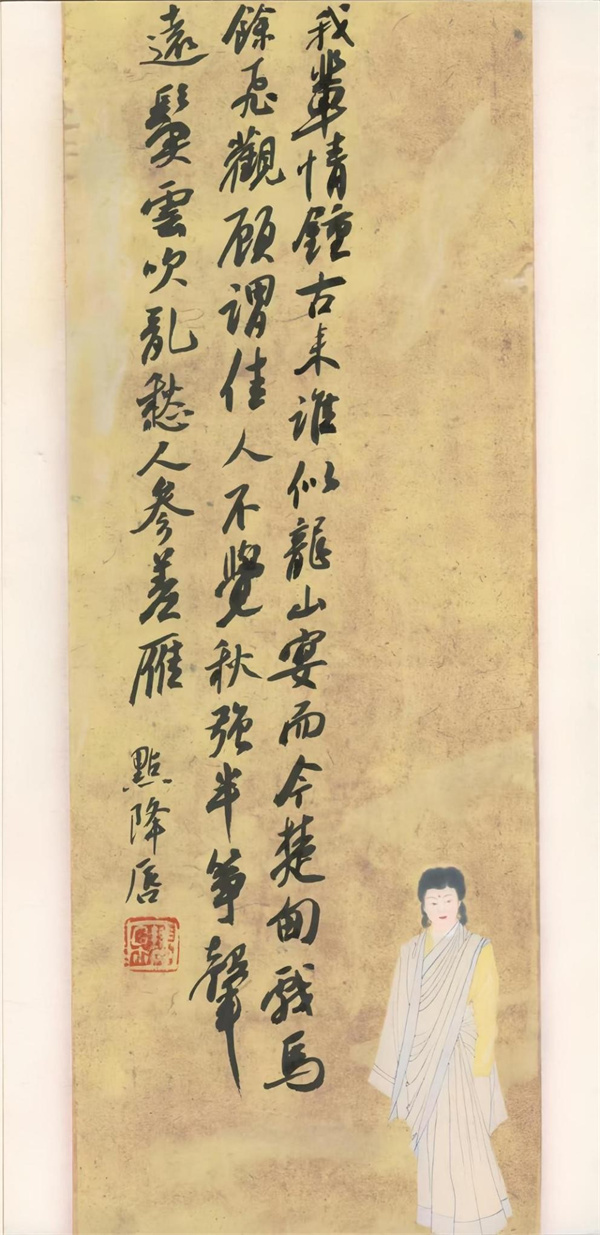 我輩情鍾古来誰似龍山宴而今楚甸戲馬
餘飛觀顧謂佳人不覺秋強半箏聲
遠鬢雲吹乱愁人參差雁
點降唇